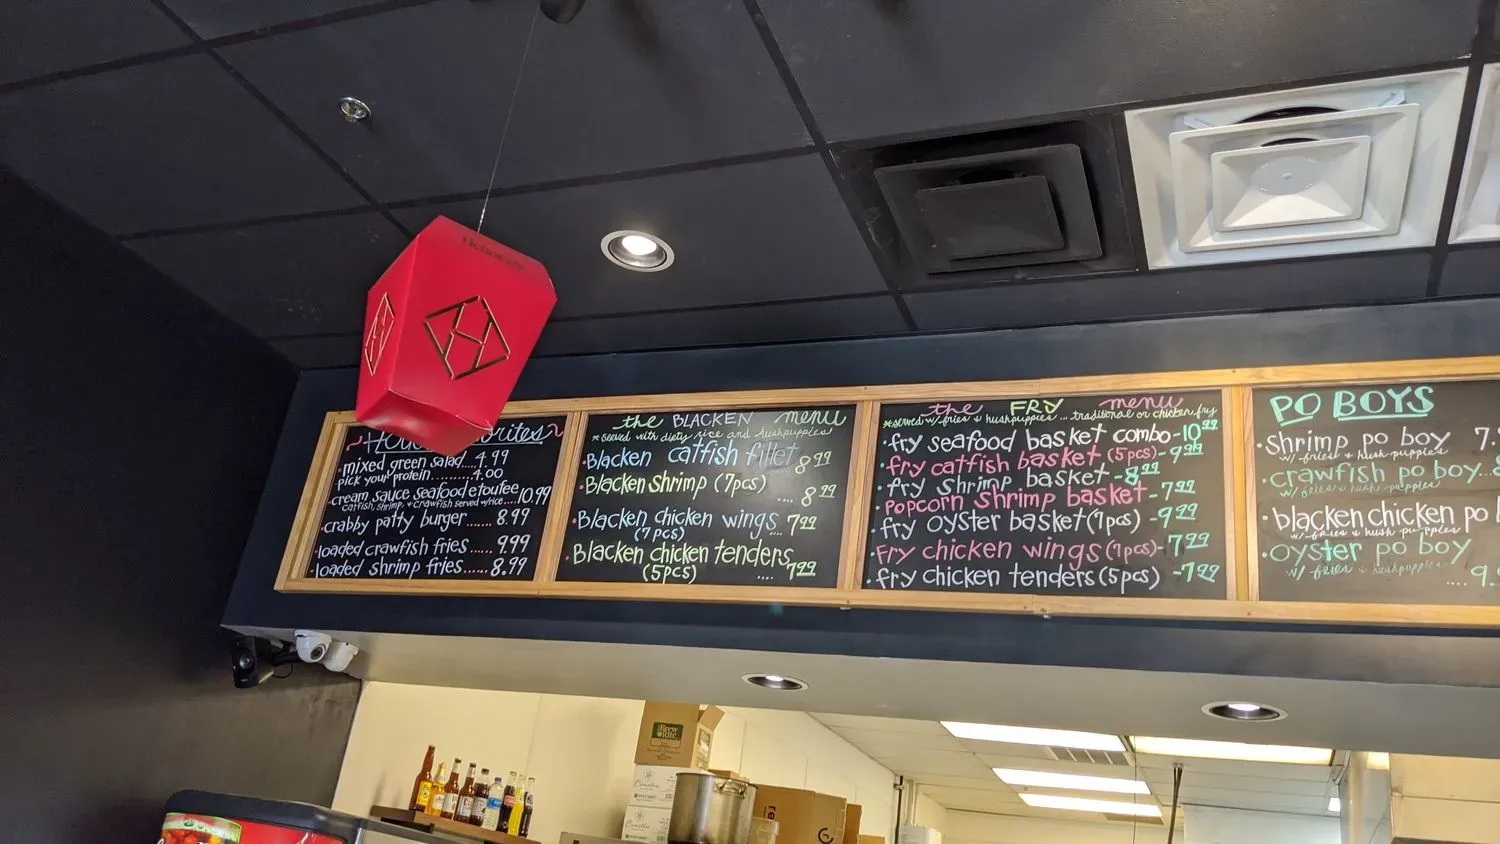 Hennessy
mixed green salad....4.99
pick your protein..........4.00
cream sauce seafood etoufee....10.99
catfish, shrimp, & crawfish served w/rice
crabby patty burger....... 8.99
loaded crawfish fries...... 9.99
loaded shrimp fries...... 8.99
the BLACKEN menu
*served with dirty rice and hushpuppies
Blacken catfish fillet 8.99
Blacken shrimp (7pcs)
.... 8.99
Blacken chicken wings... 7.99
(7pcs)
Blacken chicken tenders
(5pcs) .... 7.99
the FRY menu
*served w/fries & hushpuppies... traditional or chicken fry
fry seafood basket combo-10.99
fry catfish basket (5pcs)-9.99
fry shrimp basket -8.99
popcorn shrimp basket-7.99
fry oyster basket (7pcs) -9.99
fry chicken wings (7pcs)-7.99
fry chicken tenders (5pcs) -7.99
PO BOYS
shrimp po boy 7.
w/ fries & hush puppies
crawfish po boy..8
w/ fries & hush puppies
blacken chicken po
w/ fries & hush puppies
oyster po boy
w/ fries & hushpuppies
.... 9.
Brew
Rite